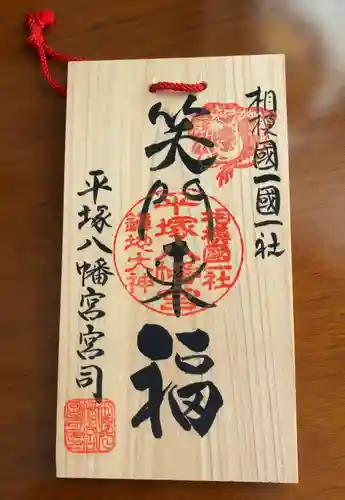 相模國一國一社
笑門来福
平塚八幡宮宮司
相模國一社
平塚八幡宮
鎮地大神